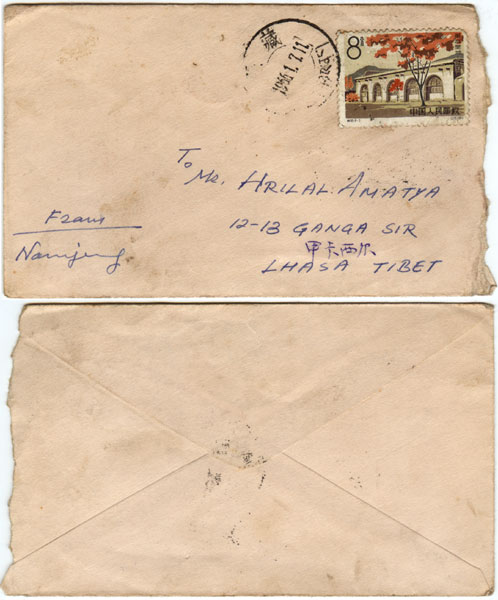 藏
1966.1.7.12
8分
中国人民邮政
To
Mr. HRILAL AMATYA
12-13 GANGA SIR
甲卡西尔
LHASA TIBET
From